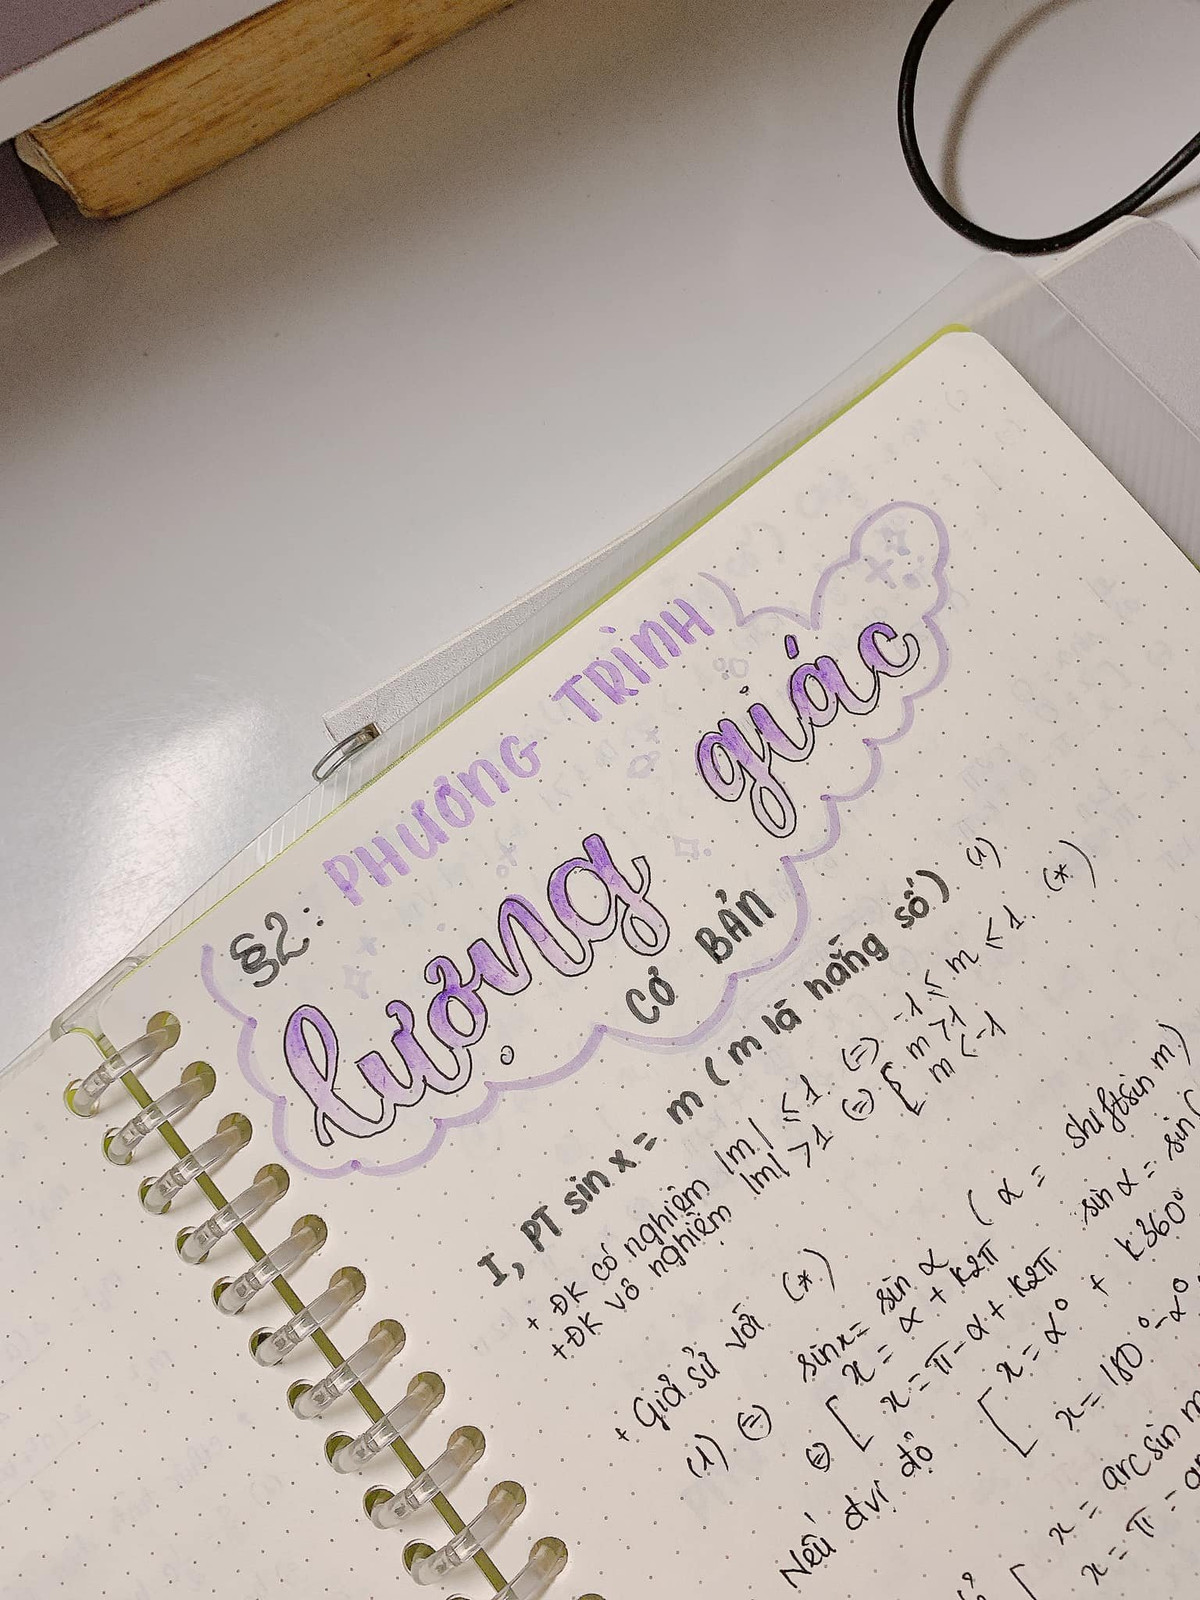 §2: PHƯƠNG TRÌNH
lượng giác
CƠ BẢN
I, PT sin x = m (m là hằng số) (1)
+ ĐK có nghiệm |m| ≤ 1 (=) -1 ≤ m ≤ 1 (*)
+ ĐK vô nghiệm |m| > 1 (=) [ m > 1
m < -1
+ Giả sử với (*)
(1) (=) sin x = sin α (α = shift sin m)
(=) [ x = α + k2π
x = π - α + k2π sin α = sin(
Nếu đvị độ [ x = α° + k360°
x = 180° - α°
[ x = arcsin m
x = π - ar